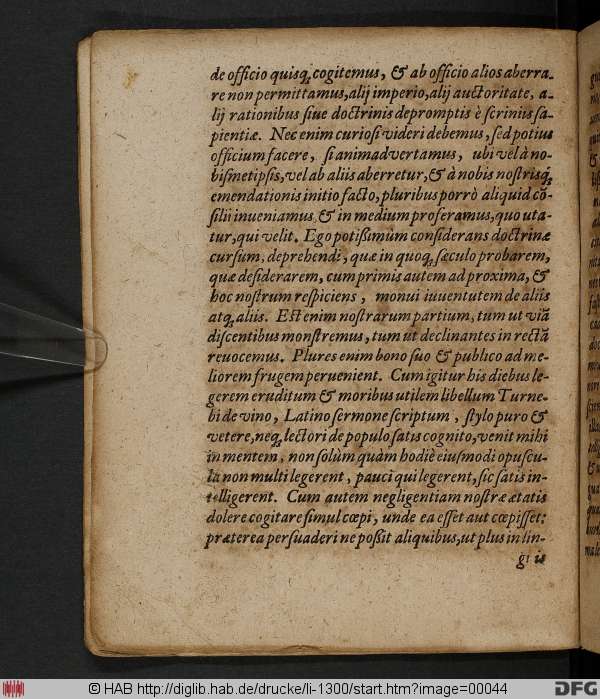 de officio quisq; cogitemus, & ab officio alios aberra-
re non permittamus, alij imperio, alij auctoritate, a-
lij rationibus siue doctrinis depromptis è scriniis sa-
pientiæ. Nec enim curiosi videri debemus, sed potius
officium facere, si animadvertamus, ubi vel à no-
bismetipsis, vel ab aliis aberretur, & à nobis nostrisq;
emendationis initio facto, pluribus porrò aliquid cõ-
silii inveniamus & in medium proferamus, quo uta-
tur, qui velit. Ego potißimùm considerans doctrinæ
cursum, deprehendi, quæ in quoq; sæculo probarem,
quæ desiderarem, cum primis autem ad proxima, &
hoc nostrum respiciens, monui iuuentutem de aliis
atq; aliis. Est enim nostrarum partium, tum ut viã
discentibus monstremus, tum ut declinantes in rectã
revocemus. Plures enim bono suo & publico ad me-
liorem frugem peruenient. Cum igitur his diebus le-
gerem eruditum & moribus utilem libellum Turne-
bi de vino, Latino sermone scriptum, stylo puro &
vetere, neq; lectori de populo satis cognito, venit mihi
in mentem, non solùm quàm hodiè eiusmodi opuscu-
la non multi legerent, pauci qui legerent, sic satis in-
telligerent. Cum autem negligentiam nostræ ætatis
dolere cogitare simul cœpi, unde ea esset aut cœpisset:
præterea persuaderi ne poßit aliquibus, ut plus in lin-
g! is
© HAB http://diglib.hab.de/drucke/li-1300/start.htm?image=00044
DFG